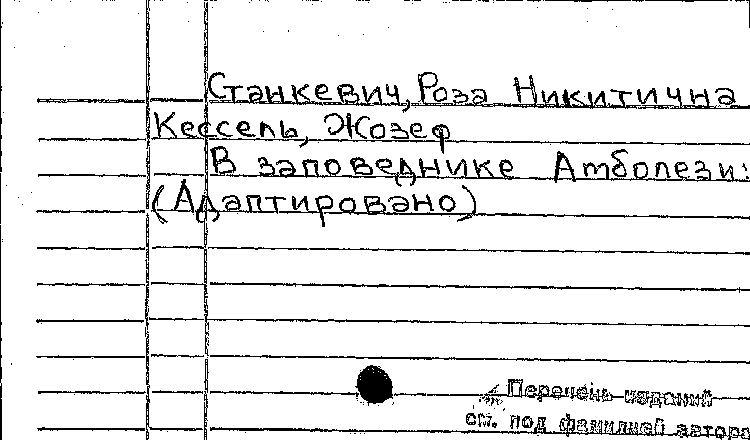 Станкевич, Роза Никитична
Кессель, Жозеф
В заповеднике Амболези:
(Адаптировано)
Перечень изданий
см. под фамилией автора